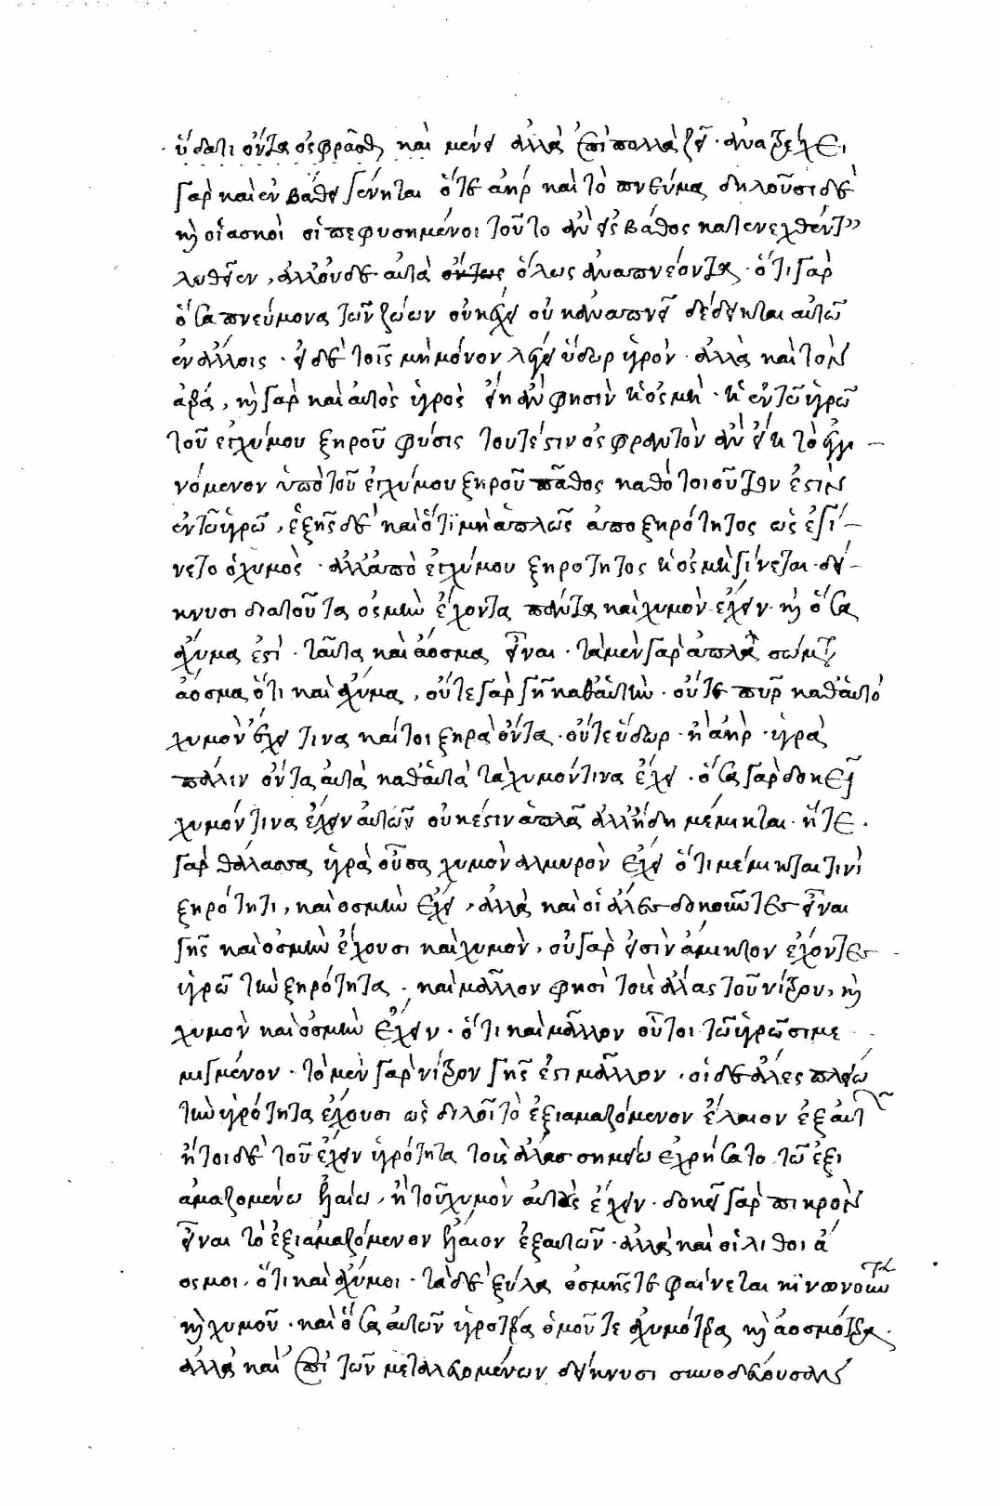 ὕδατι ὄντα ὀσφρᾶσθαι καὶ μένει ἀλλὰ ἐπιπολάζει · ἀνατρέχει
γὰρ καὶ ἐν βάθει γένηται ὅτε ἀὴρ καὶ τὸ πνεῦμα δηλοῦσι δὲ
καὶ οἱ ἀσκοὶ οἱ πεφυσημένοι τοῦτο ἂν εἰς βάθος κατενεχθέντες
λυθῶσιν, ἀλλ' οὐδὲ αὐτὰ ὅλως ἀναπνέοντα · ὅτι γὰρ
ὅσα πνεύμονα τῶν ζώων οὐκ ἔχει οὐκ ἀναπνεῖ δέδεικται αὐτῷ
ἐν ἄλλοις · εἰ δὲ τοῖς μὴ μόνον λέγει ὕδωρ ὑγρὸν · ἀλλὰ καὶ τὸν
ἀέρα, καὶ γὰρ καὶ αὐτὸς ὑγρὸς εἴη ἄν φησὶν ἡ ὀσμὴ · ἡ ἐν τῷ ὑγρῷ
τοῦ ἐγχύμου ξηροῦ φύσις τουτέστιν ὀσφραντὸν ἂν εἴη τὸ γι
νόμενον ὑπὸ τοῦ ἐγχύμου ξηροῦ πάθος καθὸ τοιοῦτον ἐστὶν
ἐν τῷ ὑγρῷ, ἑξῆς δὲ καὶ ὅτι μὴ ἁπλῶς ἀπὸ ξηρότητος ὡς ἐγί
νετο ὁ χυμὸς · ἀλλ' ἀπὸ ἐγχύμου ξηρότητος ἡ ὀσμὴ γίνεται · δεί
κνυσι διὰ τοῦ τὰ ὀσμὴν ἔχοντα πάντα καὶ χυμὸν ἔχειν καὶ ὅσα
ἄχυμα ἐστὶ · ταῦτα καὶ ἄοσμα εἶναι · τὰ μὲν γὰρ ἁπλᾶ σώματα
ἄοσμα ὅτι καὶ ἄχυμα, οὔτε γὰρ γῆ καθ' αὑτὴν · οὔτε πῦρ καθ' αὑτὸ
χυμὸν ἔχει τινα καίτοι ξηρὰ ὄντα · οὔτε ὕδωρ · ἢ ἀὴρ · ὑγρὰ
πάλιν ὄντα αὐτὰ καθ' αὑτὰ τὰ χυμόν τινα ἔχει · ὅσα γὰρ δοκεῖ
χυμόν τινα ἔχειν αὐτῶν οὐκ ἔστιν ἁπλᾶ ἀλλ' ἤδη μέμικται · ἥ τε
γὰρ θάλασσα ὑγρὰ οὖσα χυμὸν ἁλμυρὸν ἔχει ὅτι μέμικται τινὶ
ξηρότητι, καὶ ὀσμὴν ἔχει, ἀλλὰ καὶ οἱ ἅλες δοκοῦντες εἶναι
γῆς καὶ ὀσμὴν ἔχουσι καὶ χυμὸν, οὐ γὰρ εἰσὶν ἄμικτον ἔχοντες
ὑγρῷ τὴν ξηρότητα · καὶ μᾶλλον φησὶ τοὺς ἅλας τοῦ νίτρου, καὶ
χυμὸν καὶ ὀσμὴν ἔχειν · ὅτι καὶ μᾶλλον οὗτοι τῷ ὑγρῷ εἰσι με
μιγμένον · τὸ μὲν γὰρ νίτρον γῆς ἐστι μᾶλλον, οἱ δὲ ἅλες πλείω
τὴν ὑγρότητα ἔχουσι ὡς δηλοῖ τὸ ἐξικμαζόμενον ἔλαιον ἐξ αὐτῶν
ἤτοι δὲ τοῦ ἔχειν ὑγρότητα τοὺς ἅλας σημείω ἐχρήσατο τῷ ἐξι
κμαζομένω ἐλαίω, ἢ τοῦ χυμὸν αὐτοὺς ἔχειν · δοκεῖ γὰρ πικρὸν
εἶναι τὸ ἐξικμαζόμενον ἔλαιον ἐξ αὐτῶν · ἀλλὰ καὶ οἱ λίθοι ἄ
οσμοι, ὅτι καὶ ἄχυμοι · τὰ δὲ ξύλα ὀσμῆς τε φαίνεται κοινωνοῦντα
καὶ χυμοῦ · καὶ ὅσα αὐτῶν ὑγρότερα ὁμοῦ τε ἀχυμότερα καὶ ἀοσμότερα ·
ἀλλὰ καὶ ἐπὶ τῶν μεταλλευομένων δείκνυσι συνοδεύουσαν